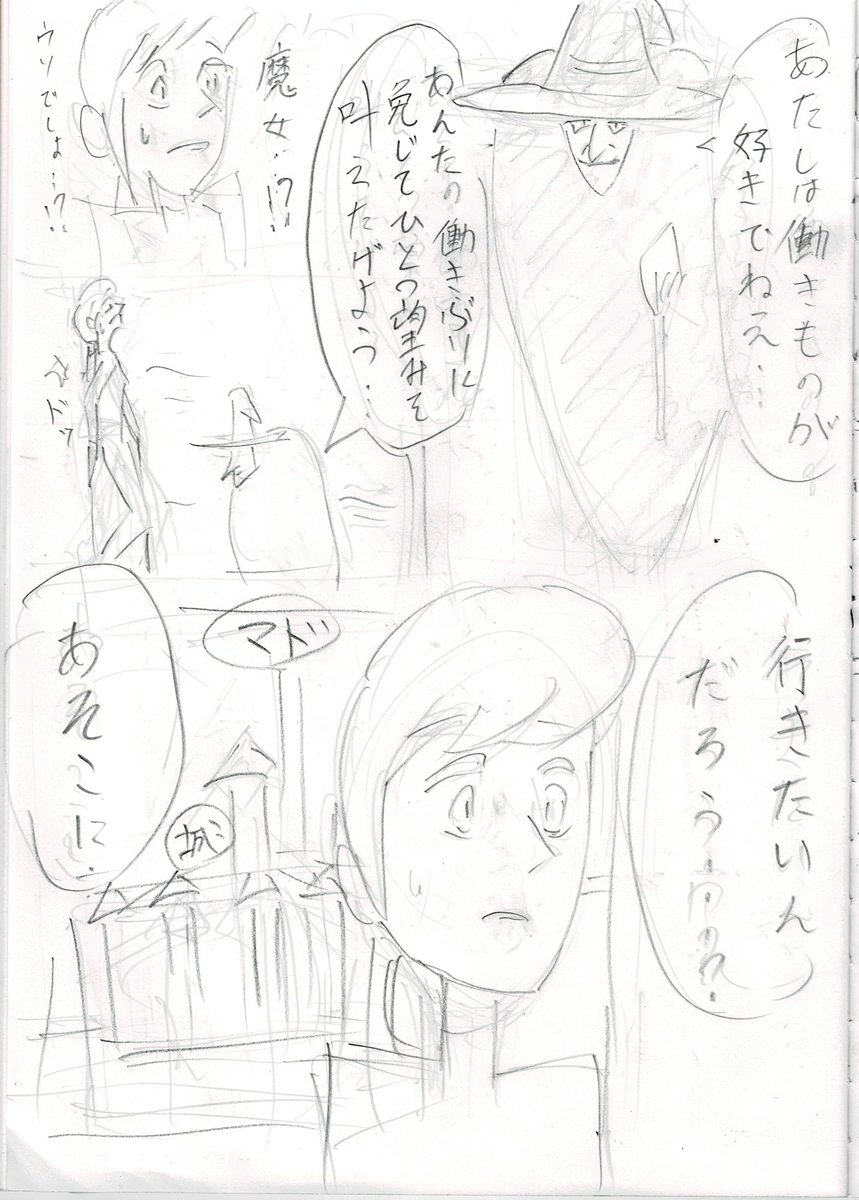 あたしは働きものが
好きでねえ…
あんたの働きぶりに
免じてひとつ望みを
叶えたげよう…
魔女…!?
ウソでしょ…!?
行きたいん
だろう…?
マド
城
あそこに…